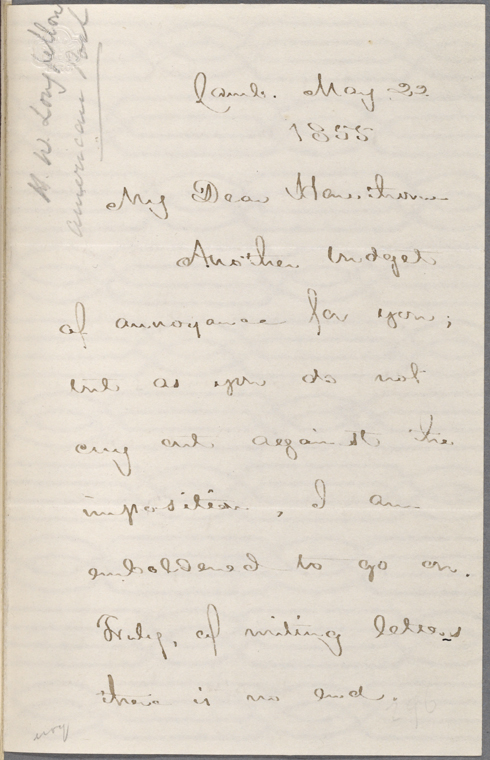 H. W. Longfellow
American Poet
Camb. May 22
1855
My Dear Hawthorne
Another budget
of annoyance for you;
but as you do not
cry out against the
imposition, I am
emboldened to go on.
Truly, of writing letters
there is no end.